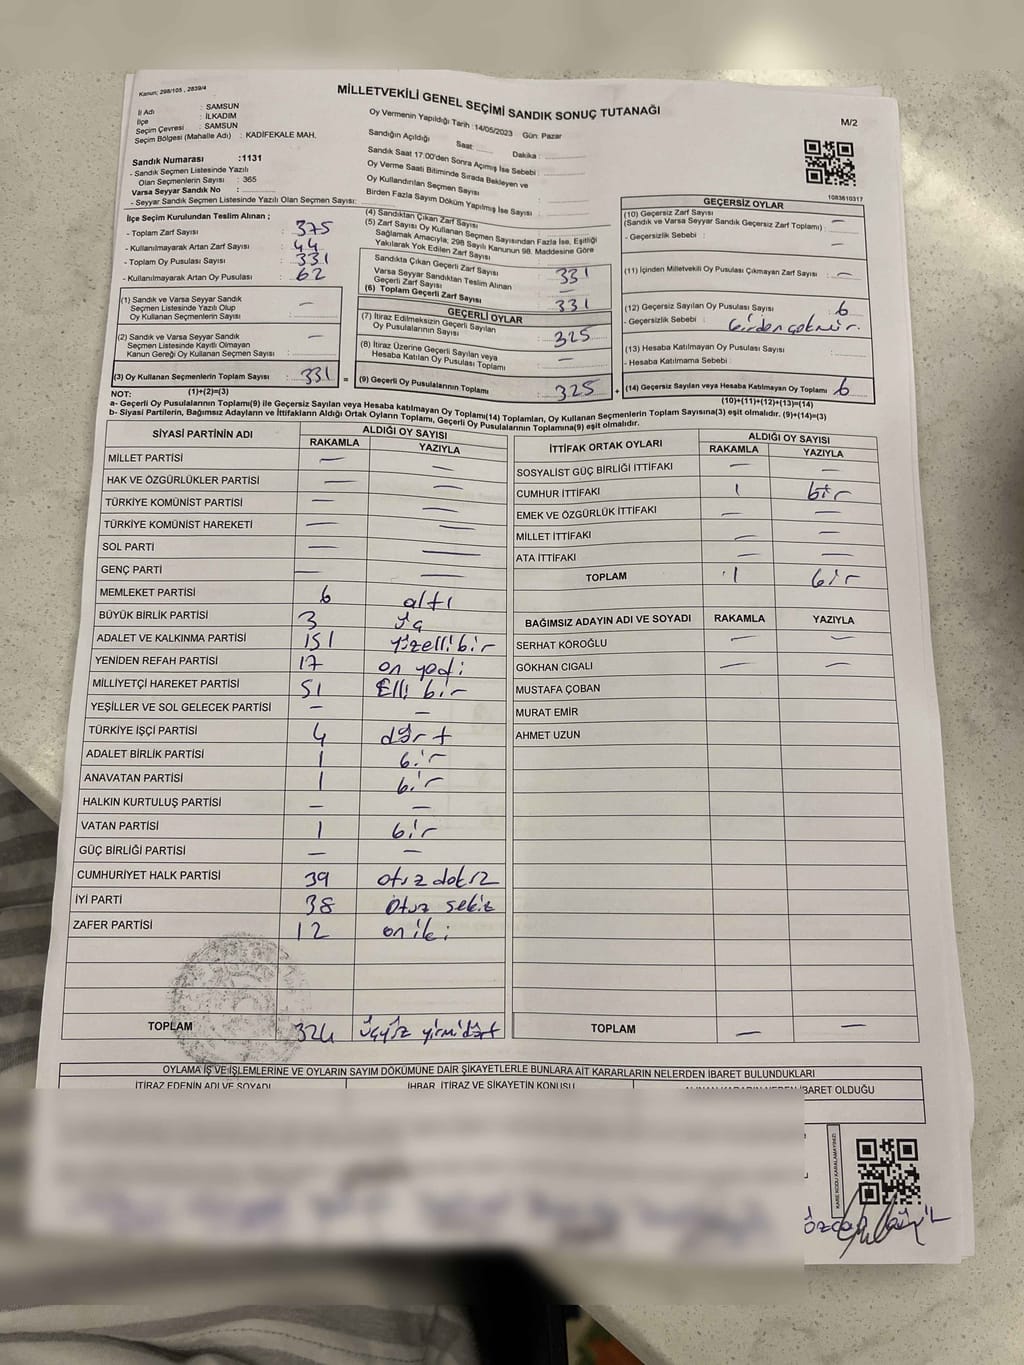 Kanun; 298/105 , 2839/4
MİLLETVEKİLİ GENEL SEÇİMİ SANDIK SONUÇ TUTANAĞI
M/2
İl Adı : SAMSUN
İlçe : İLKADIM
Seçim Çevresi : SAMSUN
Seçim Bölgesi (Mahalle Adı) : KADİFEKALE MAH.
Oy Vermenin Yapıldığı Tarih :14/05/2023 Gün: Pazar
Sandığın Açıldığı Saat: Dakika :
Sandık Saat 17:00'den Sonra Açımış İse Sebebi :
Oy Verme Saati Bitiminde Sırada Bekleyen ve
Oy Kullandırılan Seçmen Sayısı
Birden Fazla Sayım Döküm Yapılmış İse Sayısı :
1083610317
Sandık Numarası :1131
- Sandık Seçmen Listesinde Yazılı
Olan Seçmenlerin Sayısı : 365
Varsa Seyyar Sandık No :
- Seyyar Sandık Seçmen Listesinde Yazılı Olan Seçmen Sayısı:
İlçe Seçim Kurulundan Teslim Alınan ;
- Toplam Zarf Sayısı : 375
- Kullanılmayarak Artan Zarf Sayısı : 44
- Toplam Oy Pusulası Sayısı : 331
- Kullanılmayarak Artan Oy Pusulası : 62
(1) Sandık ve Varsa Seyyar Sandık
Seçmen Listesinde Yazılı Olup
Oy Kullanan Seçmenlerin Sayısı : —
(2) Sandık ve Varsa Seyyar Sandık
Seçmen Listesinde Kayıtlı Olmayan
Kanun Gereği Oy Kullanan Seçmen Sayısı : —
(3) Oy Kullanan Seçmenlerin Toplam Sayısı : 331 =
(1)+(2)=(3)
(4) Sandıktan Çıkan Zarf Sayısı
(5) Zarf Sayısı Oy Kullanan Seçmen Sayısından Fazla İse, Eşitliği
Sağlamak Amacıyla; 298 Sayılı Kanunun 98. Maddesine Göre
Yakılarak Yok Edilen Zarf Sayısı
Sandıkta Çıkan Geçerli Zarf Sayısı 331
Varsa Seyyar Sandıktan Teslim Alınan
Geçerli Zarf Sayısı —
(6) Toplam Geçerli Zarf Sayısı 331
GEÇERLİ OYLAR
(7) İtiraz Edilmeksizin Geçerli Sayılan
Oy Pusulalarının Sayısı 325
(8) İtiraz Üzerine Geçerli Sayılan veya
Hesaba Katılan Oy Pusulası Toplamı —
(9) Geçerli Oy Pusulalarının Toplamı 325 +
GEÇERSİZ OYLAR
(10) Geçersiz Zarf Sayısı
(Sandık ve Varsa Seyyar Sandık Geçersiz Zarf Toplamı) : —
- Geçersizlik Sebebi : —
(11) İçinden Milletvekili Oy Pusulası Çıkmayan Zarf Sayısı : —
(12) Geçersiz Sayılan Oy Pusulası Sayısı : 6
- Geçersizlik Sebebi :
(13) Hesaba Katılmayan Oy Pusulası Sayısı :
- Hesaba Katılmama Sebebi :
(14) Geçersiz Sayılan veya Hesaba Katılmayan Oy Toplamı : 6
(10)+(11)+(12)+(13)=(14)
NOT:
a- Geçerli Oy Pusulalarının Toplamı(9) ile Geçersiz Sayılan veya Hesaba Katılmayan Oy Toplamı(14) Toplamları, Oy Kullanan Seçmenlerin Toplam Sayısına(3) eşit olmalıdır. (9)+(14)=(3)
b- Siyasi Partilerin, Bağımsız Adayların ve İttifakların Aldığı Ortak Oyların Toplamı, Geçerli Oy Pusulalarının Toplamına(9) eşit olmalıdır.
SİYASİ PARTİNİN ADI ALDIĞI OY SAYISI
RAKAMLA YAZIYLA
MİLLET PARTİSİ — —
HAK VE ÖZGÜRLÜKLER PARTİSİ — —
TÜRKİYE KOMÜNİST PARTİSİ — —
TÜRKİYE KOMÜNİST HAREKETİ — —
SOL PARTİ — —
GENÇ PARTİ — —
MEMLEKET PARTİSİ 6 altı
BÜYÜK BİRLİK PARTİSİ 3 üç
ADALET VE KALKINMA PARTİSİ 151 yüzellibir
YENİDEN REFAH PARTİSİ 17 on yedi
MİLLİYETÇİ HAREKET PARTİSİ 51 Elli bir
YEŞİLLER VE SOL GELECEK PARTİSİ — —
TÜRKİYE İŞÇİ PARTİSİ 4 dört
ADALET BİRLİK PARTİSİ 1 bir
ANAVATAN PARTİSİ 1 bir
HALKIN KURTULUŞ PARTİSİ — —
VATAN PARTİSİ 1 bir
GÜÇ BİRLİĞİ PARTİSİ — —
CUMHURİYET HALK PARTİSİ 39 otuz dokuz
İYİ PARTİ 38 otuz sekiz
ZAFER PARTİSİ 12 oniki
TOPLAM 324 üçyüz yirmidört
İTTİFAK ORTAK OYLARI ALDIĞI OY SAYISI
RAKAMLA YAZIYLA
SOSYALİST GÜÇ BİRLİĞİ İTTİFAKI — —
CUMHUR İTTİFAKI 1 bir
EMEK VE ÖZGÜRLÜK İTTİFAKI — —
MİLLET İTTİFAKI — —
ATA İTTİFAKI — —
TOPLAM 1 bir
BAĞIMSIZ ADAYIN ADI VE SOYADI RAKAMLA YAZIYLA
SERHAT KÖROĞLU — —
GÖKHAN CIGALI — —
MUSTAFA ÇOBAN
MURAT EMİR
AHMET UZUN
TOPLAM — —
OYLAMA İŞ VE İŞLEMLERİNE VE OYLARIN SAYIM DÖKÜMÜNE DAİR ŞİKAYETLERLE BUNLARA AİT KARARLARIN NELERDEN İBARET BULUNDUKLARI
İTİRAZ EDENİN ADI VE SOYADI İHBAR, İTİRAZ VE ŞİKAYETİN KONUSU İBARET OLDUĞU